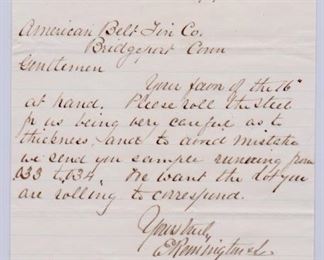 American Belt Fin Co.
Bridgeport Conn
Gentlemen
Your favor of the 16"
at hand. Please roll the steel
for us being very careful as to
thickness, and to avoid mistake
we send you sample running from
.033 to .034" We want the lot you
are rolling to correspond.
Yours truly
E Remington &